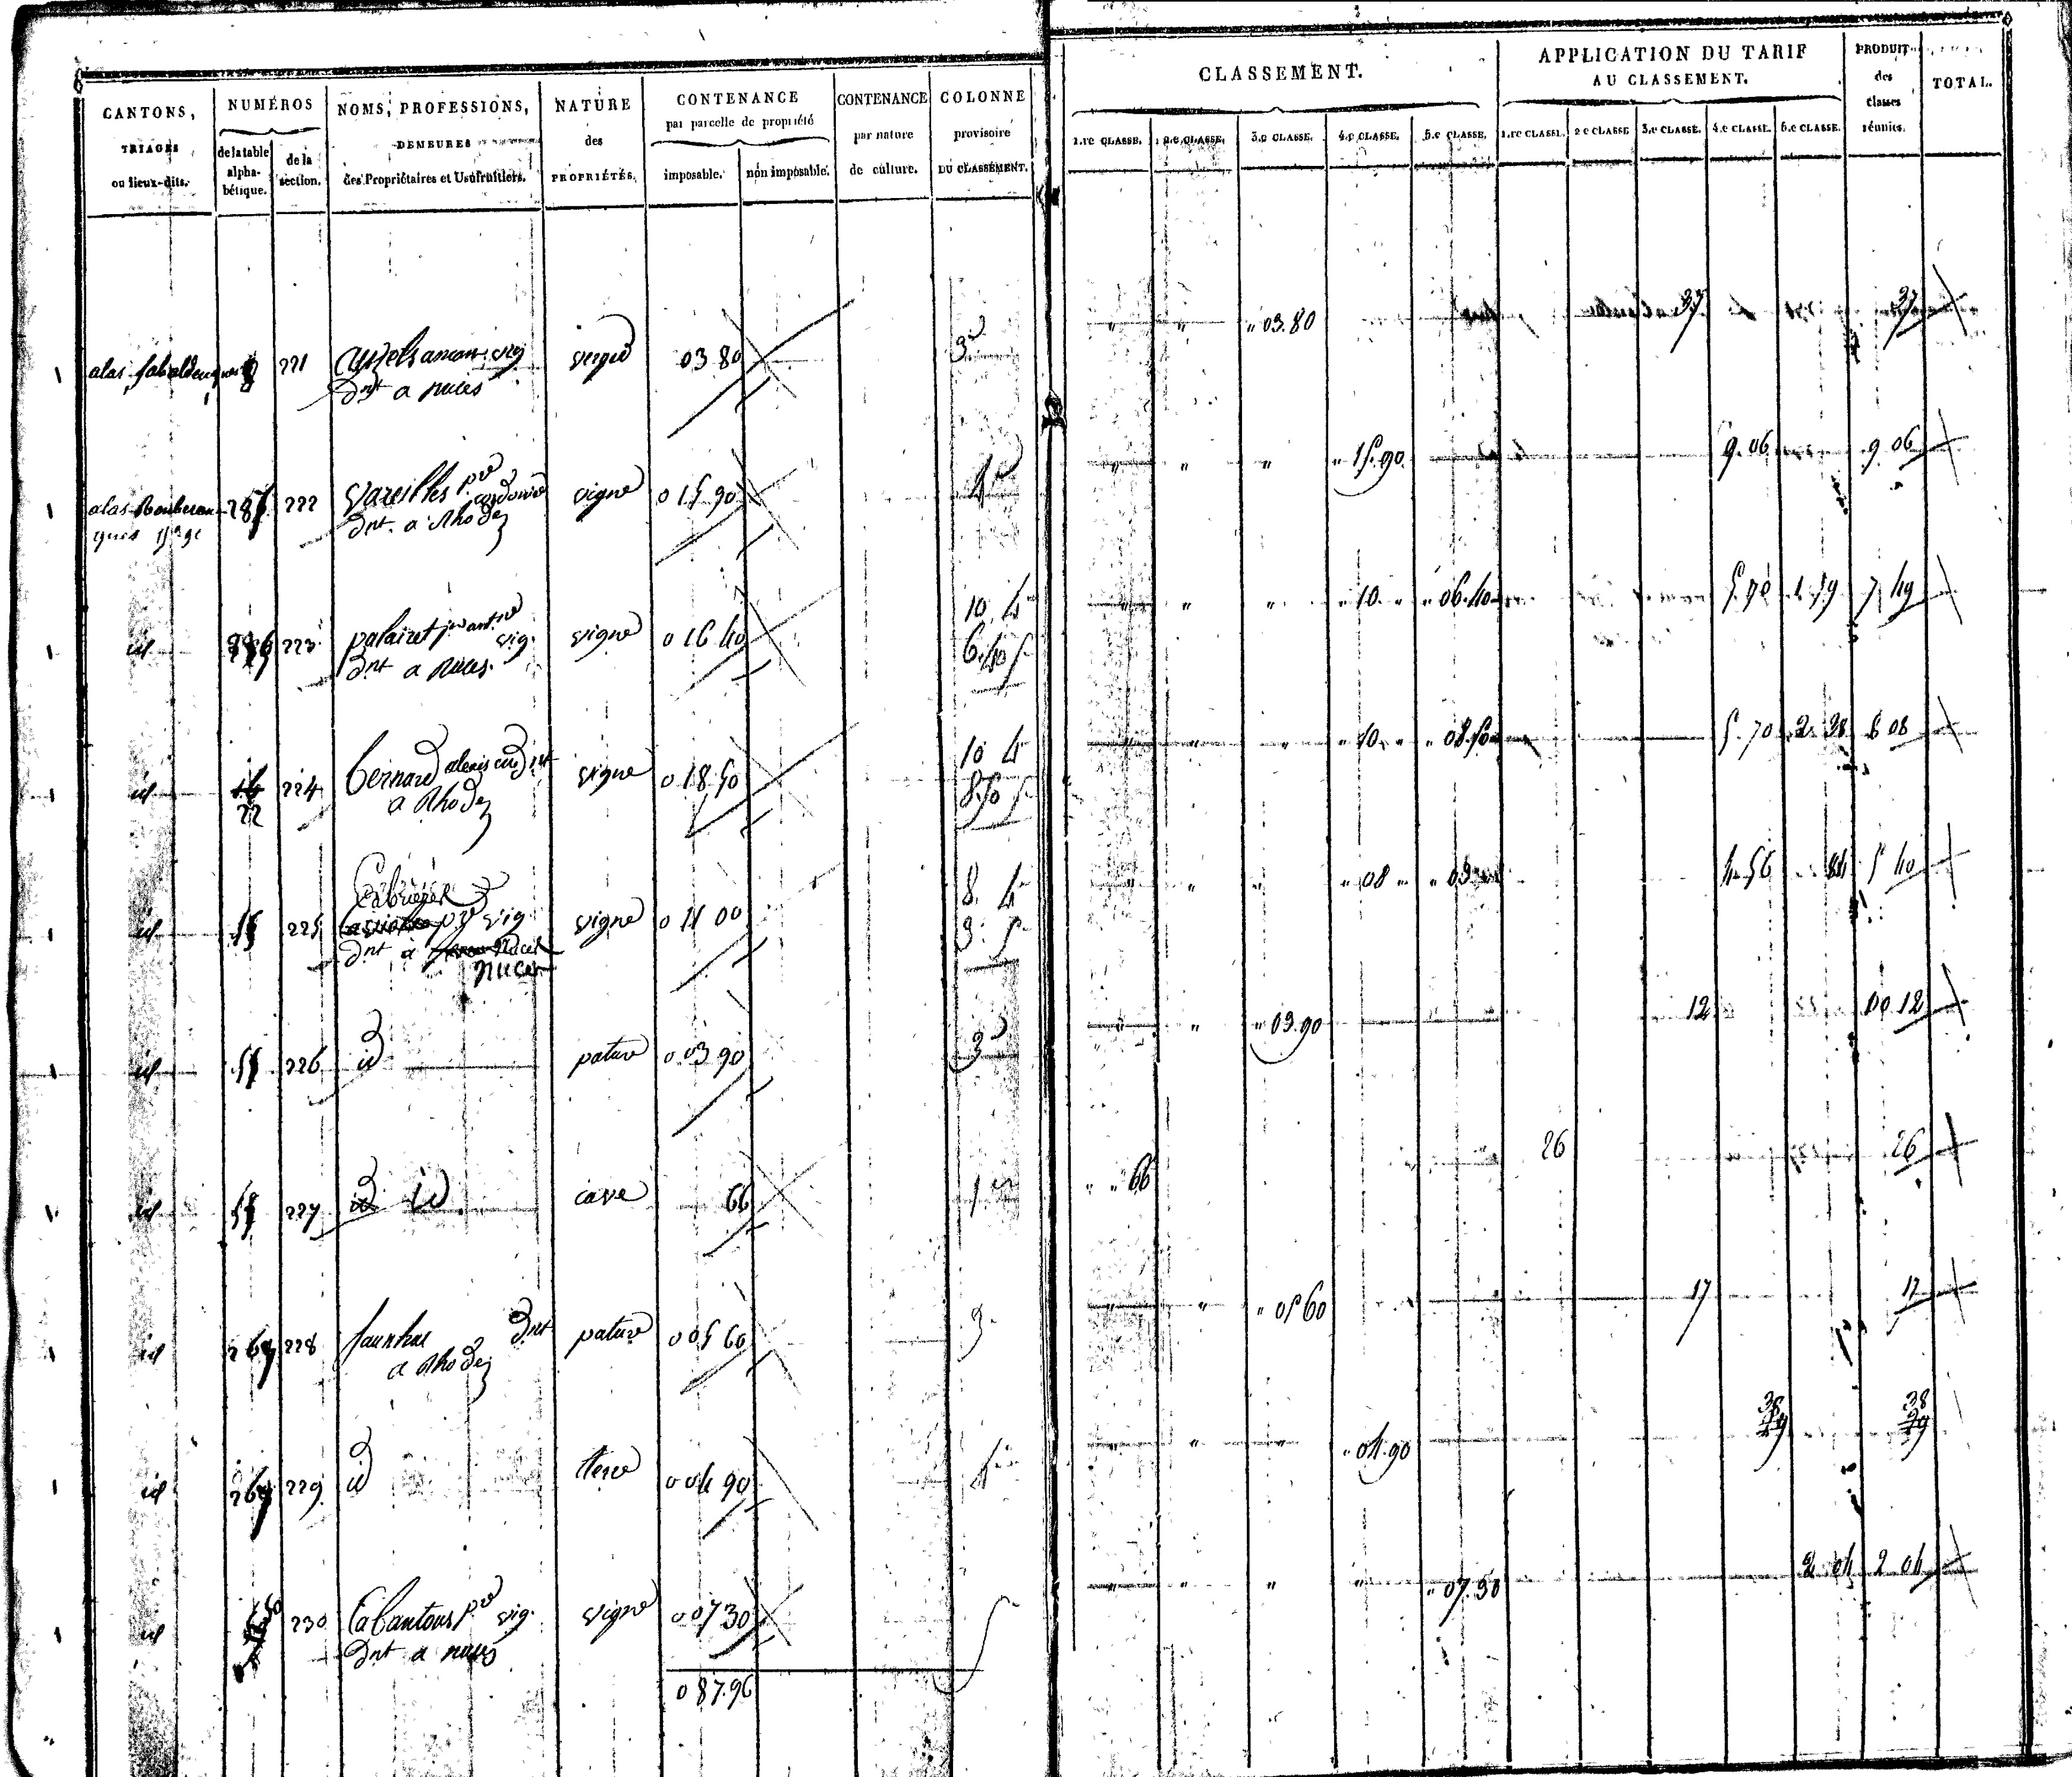 CANTONS, TRIAGES ou lieux-dits. NUMÉROS de la table alpha-bétique. de la section. NOMS, PROFESSIONS, DEMEURES des Propriétaires et Usufruitiers. NATURE des PROPRIÉTÉS. CONTENANCE par parcelle de propriété imposable. non imposable. CONTENANCE par nature de culture. COLONNE provisoire DU CLASSEMENT.
CLASSEMENT. 1.re CLASSE. 2.e CLASSE. 3.e CLASSE. 4.e CLASSE. 5.e CLASSE. APPLICATION DU TARIF AU CLASSEMENT. 1.re CLASSE. 2.e CLASSE 3.e CLASSE. 4.e CLASSE. 5.e CLASSE. PRODUIT des classes réunies. TOTAL.
alas 221 vig 03 80 3e " " " 03.80 37 37
dnt a nuces
alas 222 Vareilles pre vigne 0 15 90 4e " " " " 15.90 9.06 9 06
dnt a Rhodez
id 223 palairet vig. vigne 0 16 40 10. 4 " " " " 10. " " 06.40 5.70 1.79 7 49
dnt a nuces. 6.40 5
id 22 224 bernard alexis dnt vigne 0 18 50 10 4 " " " " 10. " " 08.50 5.70 2 38 8 08
a Rhodez 8.50 5
id 225 Cabrieres pre vig vigne 0 11 00 8. 4 " " " " 08 " " 03 4.56 84 5 40
dnt à nuces 3. 5
id 226 id pature 0 03 90 3e " " " 03.90 12 00 12
id 227 id cave 66 1re " " 66 26 26
id 228 dnt pature 0 05 60 3 " " " 05 60 17 17
a Rhodez
id 229 id terre 0 04 90 " " " " 04.90 38 38
id 230 Cabantous pre vig. vigne 0 07 30 5 " " " " " 07.30 2 04 2 04
dnt a nuces
0 87.96